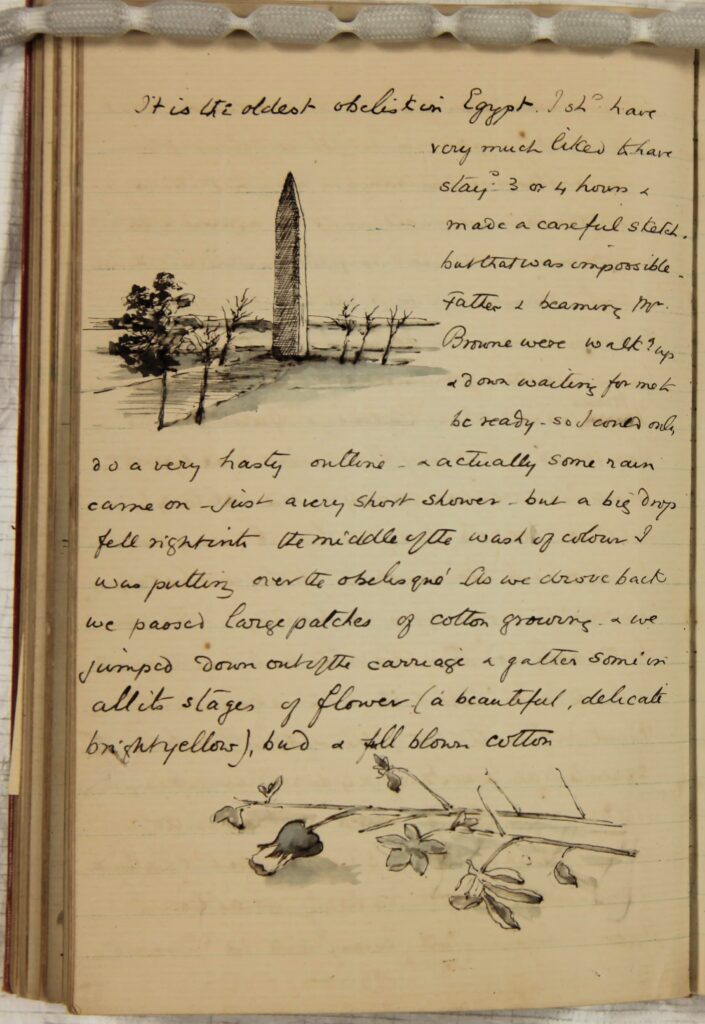 It is the oldest obelisk in Egypt. I shd have
very much liked to have
stayd 3 or 4 hours &
made a careful sketch.
but that was impossible.
Father & beaming Mr.
Browne were walkg up
& down waiting for me to
be ready - so I could only
do a very hasty outline - & actually some rain
came on - just a very short shower - but a big drop
fell right into the middle of the wash of colour I
was putting over the obelisque! As we drove back
we passed large patches of cotton growing - & we
jumped down out of the carriage & gather some in
all its stages of flower (a beautiful, delicate
bright yellow), bud & full blown cotton